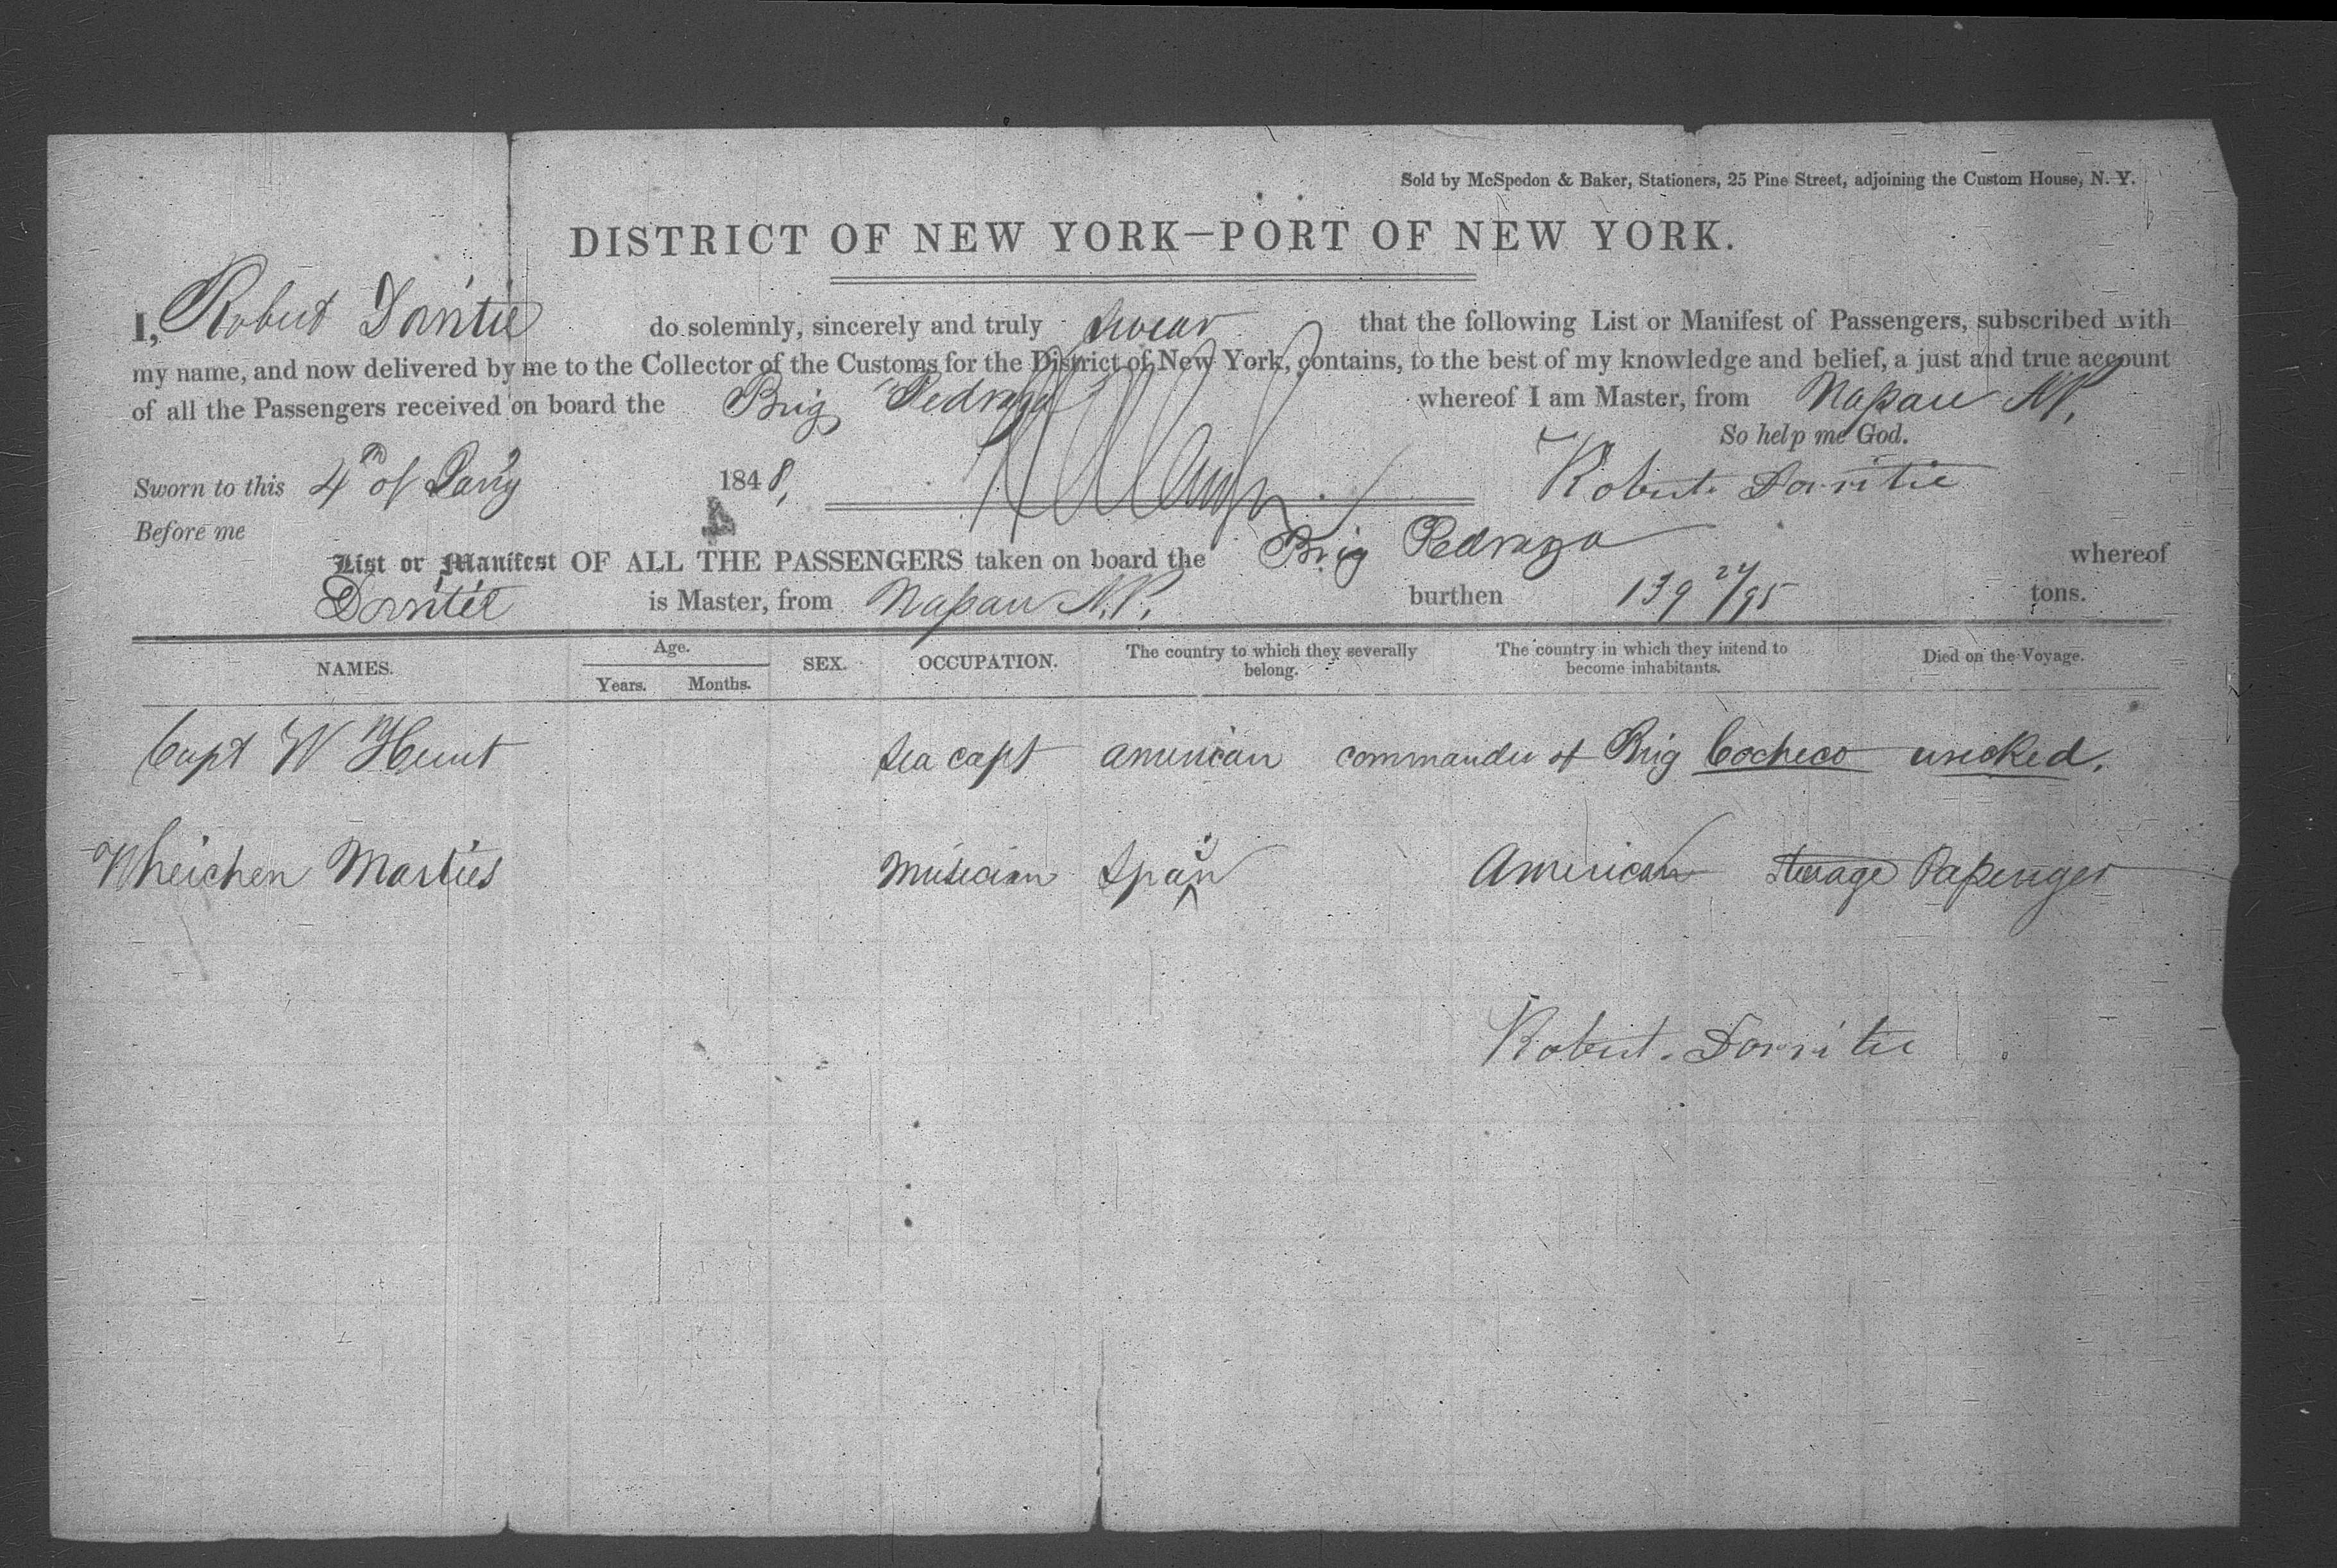 Sold by McSpedon & Baker, Stationers, 25 Pine Street, adjoining the Custom House, N. Y.
DISTRICT OF NEW YORK—PORT OF NEW YORK.
I, Robert Dorritie do solemnly, sincerely and truly swear that the following List or Manifest of Passengers, subscribed with
my name, and now delivered by me to the Collector of the Customs for the District of New York, contains, to the best of my knowledge and belief, a just and true account
of all the Passengers received on board the Brig "Pedraza" whereof I am Master, from Nassau N.P.
So help me God.
Sworn to this 4th of Jany 1848, Robert. Dorritie
Before me
List or Manifest OF ALL THE PASSENGERS taken on board the Brig Pedraza whereof
Dorritie is Master, from Nassau N.P. burthen 139 24/95 tons.
NAMES. Age. Years. Months. SEX. OCCUPATION. The country to which they severally belong. The country in which they intend to become inhabitants. Died on the Voyage.
Capt W m Hunt Sea capt american commander of Brig Cocheco wrecked.
Marties Musician Spain American Steerage Passenger
Robert. Dorritie